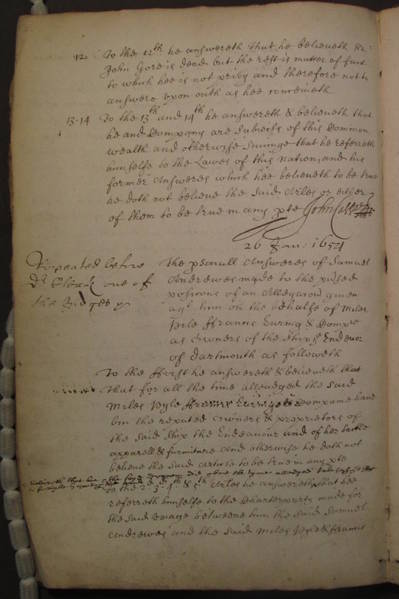 12. To the 12th he answereth that he believeth Sr
John Gore is dead but the rest is matter of fact
to which hee is not privy and therefore not to
answere upon oath as hee conceiveth
13-14 To the 13 and 14th he answereth & believeth that
he and Company are Subiects of this Common
wealth and otherwise Saveinge that he referreth
himselfe to the Lawes of this Nation, and his
former Answeres which hee believeth to be true
he doth not believe the said Articles or either
of them to be true in any pte John
26 Jan: 1654
Repeated before
Dr Clerk one of
the Judges
The personall Answeres of Samuel
Andrewes made to the
positions of an Allegacion given
agt him on the behalfe of Miles
Pyle Francis & Company
as Owners of the Shipp Endeavor
of Dartmouth as followeth
To the first he answereth & believeth that
that for all the time alleadged the said
Miles Pyle and Company have
bin the reputed owners & proprietors of
the said Ship the Endeavour and of her tackle
apparell & furniture And otherwise he doth not
believe the said article to be true in any pte
To the 2. 3. 4 & 5th Articles he answereth, that hee
referreth himselfe to the Charterparty made for
the said voyage betweene him the said Samuel
Andrewes and the said Miles Pyle & Francis